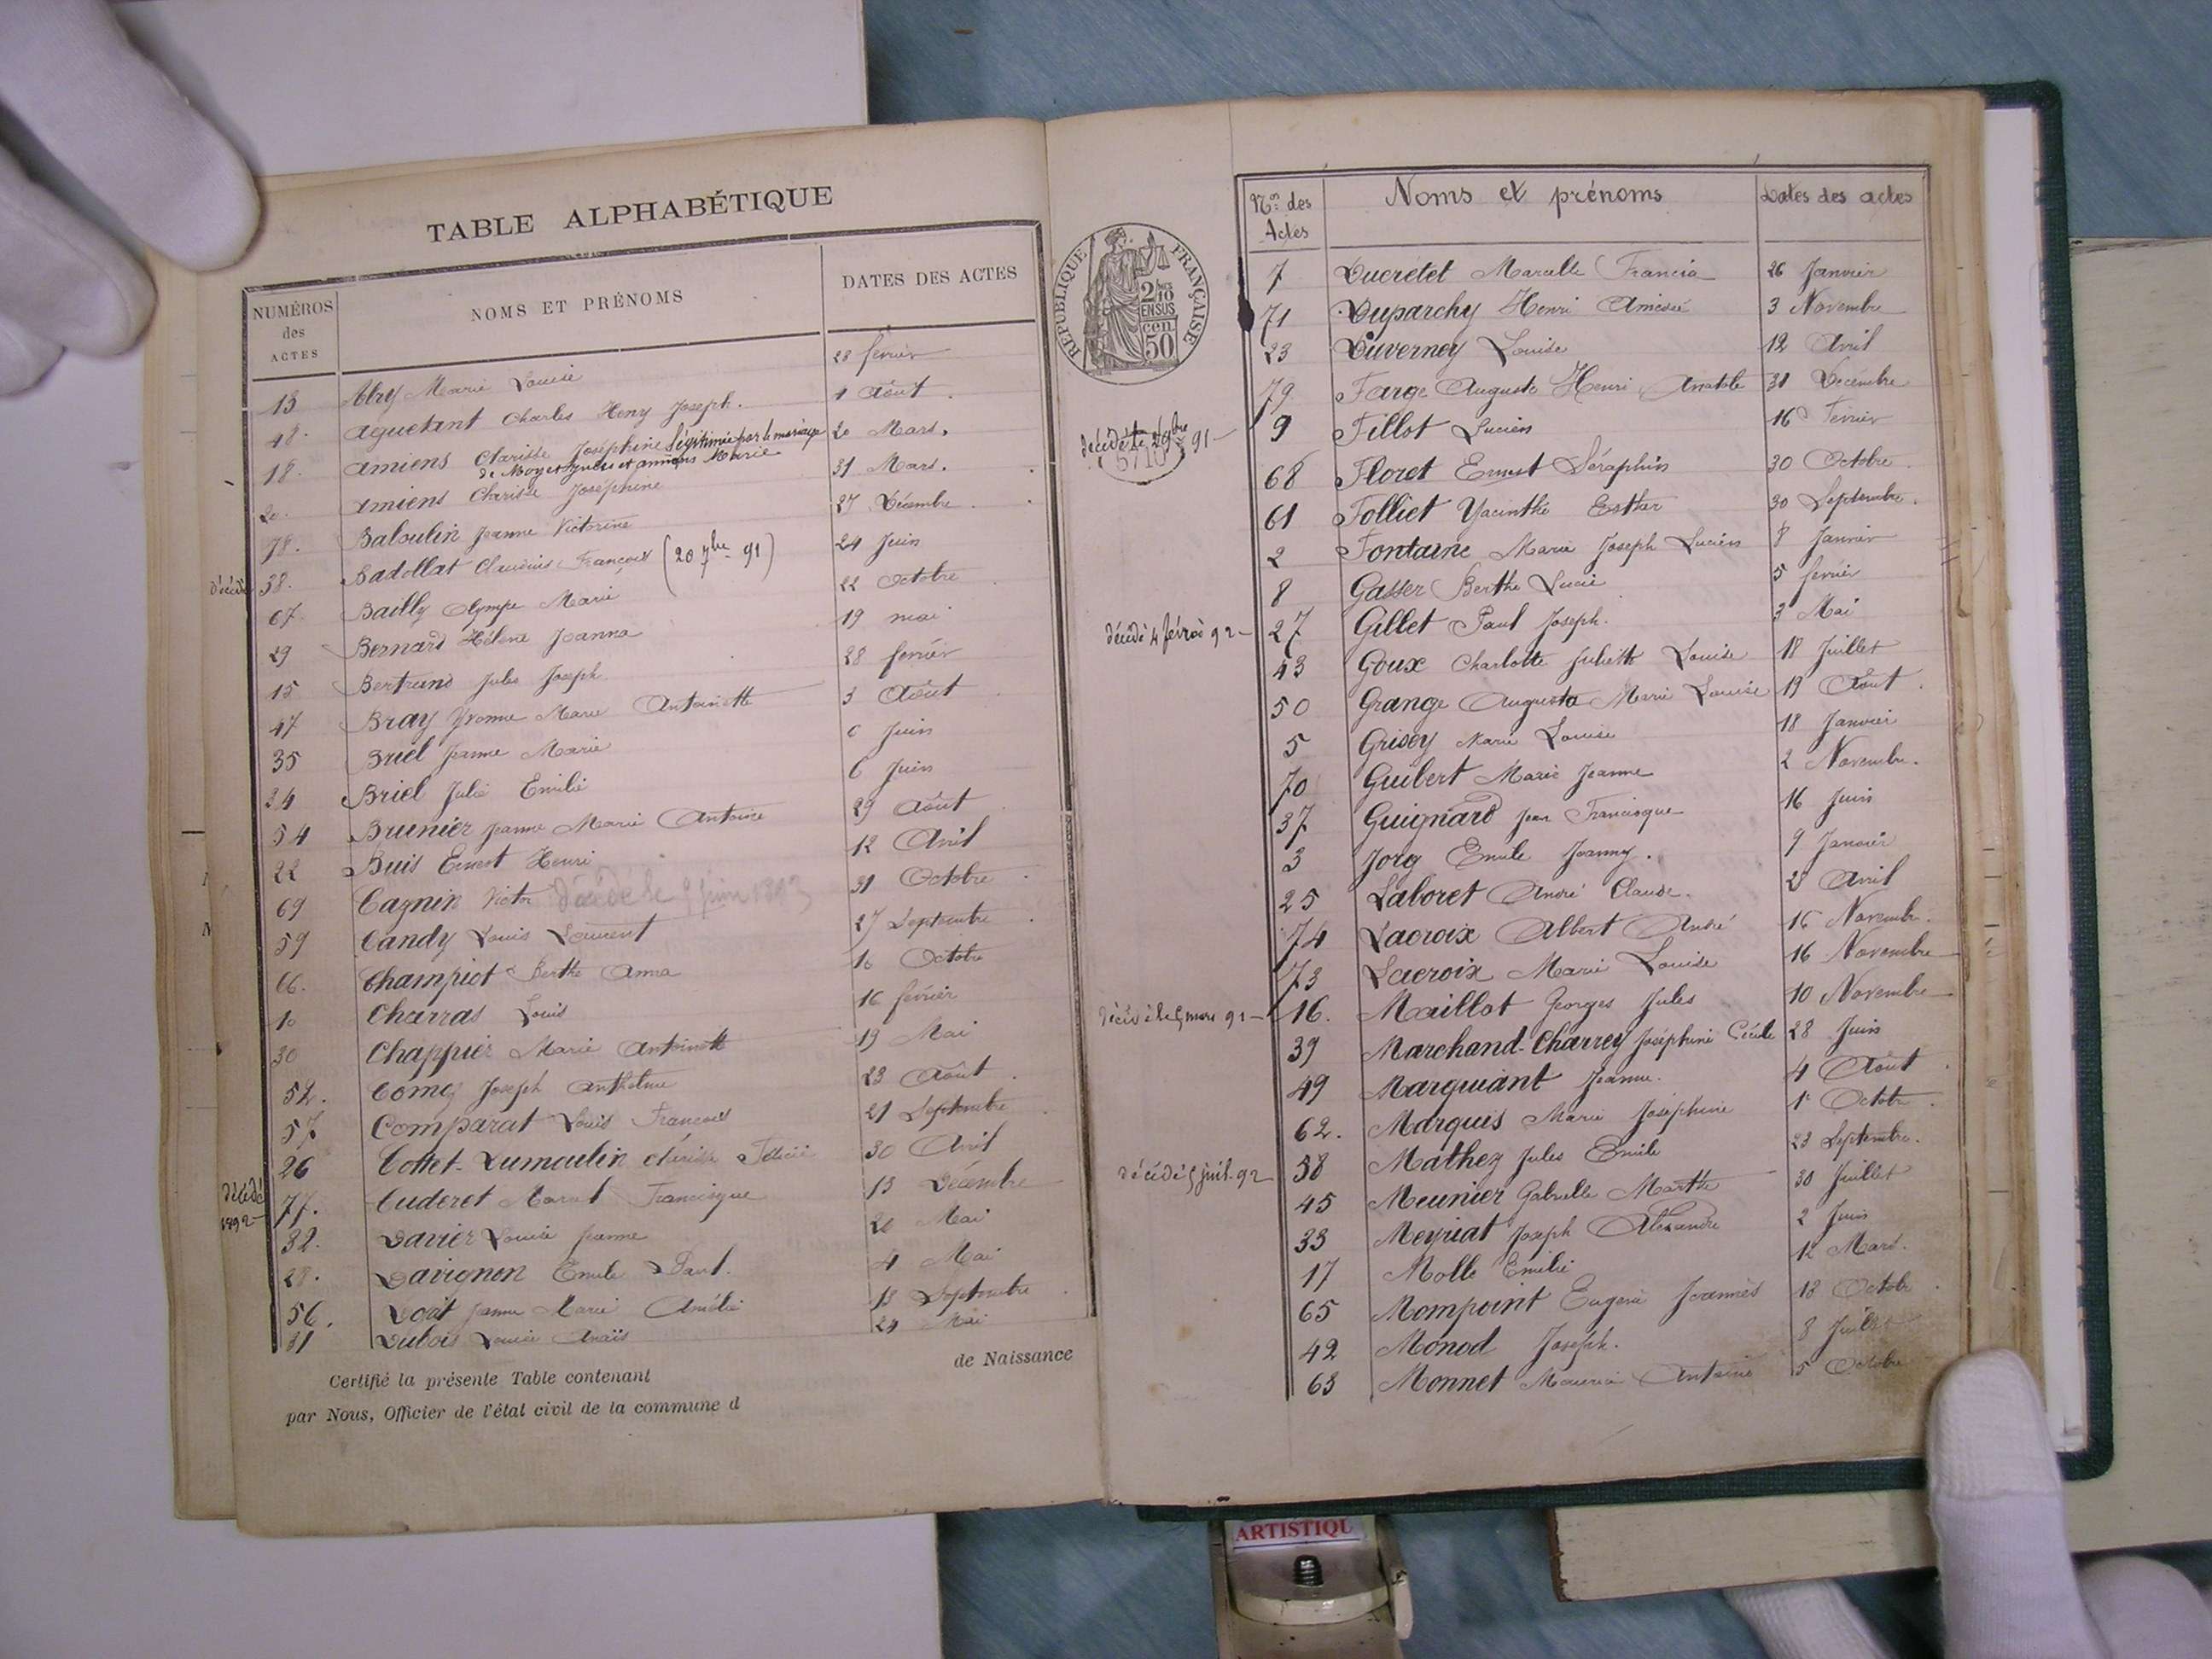 TABLE ALPHABÉTIQUE
NUMÉROS des ACTES NOMS ET PRÉNOMS DATES DES ACTES
13 Abry Marie Louise 28 février
48. Aguettant Charles Henry Joseph. 1 Août.
18. Amiens Clarisse Joséphine Légitimée par le mariage 20 Mars.
de Moyet et Amiens Marie
20. Amiens Clarisse Joséphine 31 Mars.
78. Baboulin Jeanne Victorine 27 Décembre
décédé 38. Badollat Claudius François (20 7bre 91) 24 Juin
67 Bailly Olympe Marie 22 Octobre
29 Bernard Hélène Joanna 19 mai
15 Bertrand Jules Joseph 28 fevrier
47 Bray Yvonne Marie Antoinette 3 Août
35 Briel Jeanne Marie 6 Juin
34 Briel Julie Emilie 6 Juin
54 Brunier Jeanne Marie Antoine 29 Août
22 Buis Ernest Henri 12 Avril
69 Cagnin Victor Décédé le 9 Juin 1893 31 Octobre
59 Candy Louis Laurent 27 Septembre
66. Champiot Berthe Anna 16 Octobre
10 Charras Louis 16 février
30 Chappier Marie Antoinette 19 Mai
52. Comoy Joseph Anthelme 23 Août
57 Comparat Louis François 21 Septembre
26 Cottet-Dumoulin Félicie 30 Avril
décédé 1892 77. Cuderet Marcel Francisque 13 Décembre
32. Davier Louise Jeanne 20 Mai
28. Davignon Emile Paul. 4 Mai
56. Doat Jeanne Marie Amélie 13 Septembre
31 Dubois Louise Anaïs 24 Mai
Certifié la présente Table contenant de Naissance
par Nous, Officier de l'état civil de la commune d
RÉPUBLIQUE FRANÇAISE
2/10 EN SUS
50 cen
Nos des Actes Noms et prénoms Dates des actes
7 Ducrétet Marcelle Francia 26 Janvier
71 Duparchy Henri Amédée 3 Novembre
23 Duverney Louise 12 Avril
79 Farge Auguste Henri Anatole 31 Décembre
décédé le 91 9 Fillot Lucien 16 Fevrier
68 Floret Ernest Séraphin 30 Octobre
61 Folliet Yacinthe Esther 30 Septembre.
2 Fontaine Marie Joseph Lucien 8 Janvier
8 Gasser Berthe Lucie 5 fevrier
décédé 4 février 92 27 Gillet Paul Joseph. 3 Mai
43 Goux Charlotte Juliette Louise 18 Juillet
50 Grange Augusta Marie Louise 19 Août.
5 Grisey Marie Louise 18 Janvier
70 Guibert Marie Jeanne 2 Novembre.
37 Guignard Jean Francisque 16 Juin
3 Jorg Emile Joanny. 9 Janvier
25 Laboret André Claude. 28 Avril
74 Lacroix Albert André 16 Novembre.
73 Lacroix Marie Louise 16 Novembre
décédé le 5 mars 91 16. Maillot Georges Jules 10 Novembre
39 Marchand-Charrey Joséphine Cécile 28 Juin
49 Marquiant Jeanne. 4 Août
62. Marquis Marie Joséphine 1er Octobre
décédé 5 juil. 92 58 Mathey Jules Emile 23 Septembre.
45 Meunier Gabrielle Marthe 30 Juillet
33 Meyriat Joseph Alexandre 2 Juin
17 Molle Emilie 12 Mars.
65 Mompoint Eugenie Joannès 13 Octobre
42 Monod Joseph. 8 Juillet
63 Monnet Maurice Antoine 5 Octobre
ARTISTIQU